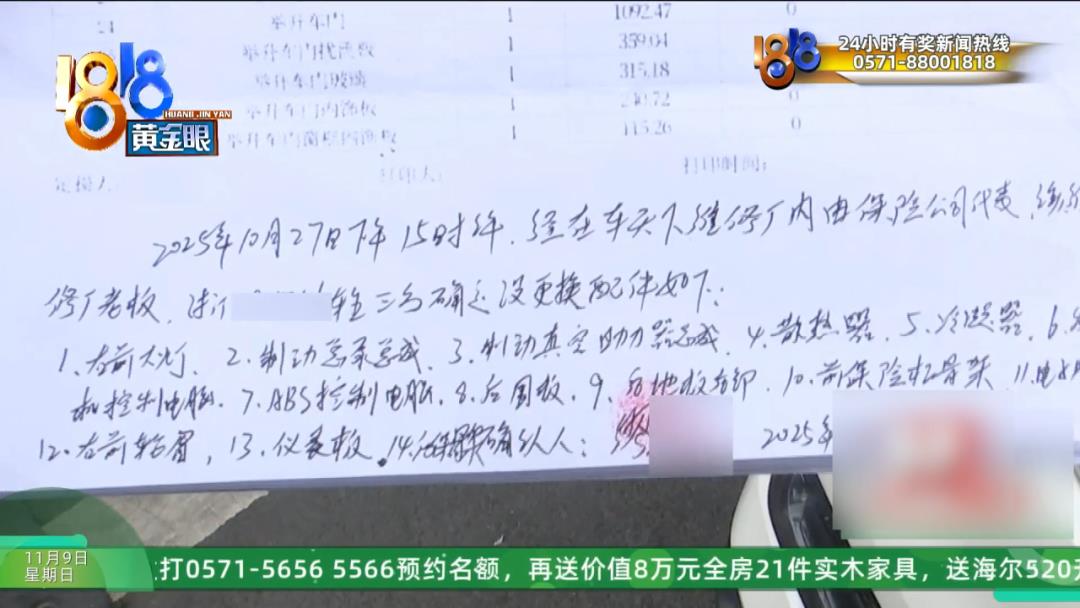 24 举升车门 1 1092.47 0
举升车门扰流板 1 359.04 0
举升车门玻璃 1 315.18
举升车门内饰板 1 240.72 0
举升车门窗框内饰板 1 115.26 0
定损人 打印人: 打印时间:
1818
HUANG JIN YAN
黄金眼
1818
24小时有奖新闻热线
0571-88001818
2025年10月27日下午15时许,经在车天下维修厂内由保险公司代表,
修厂老板,
三方确定没更换配件如下:
1、右前大灯、2、制动总泵总成、3、制动真空助力器总成、4、散热器、5、冷凝器、6、
机控制电脑、7、ABS控制电脑、8、后围板、9、后地板 10、前保险杠骨架、11、
12、右前轮眉,13、仪表板、14 确认人:
2025年
11月9日
星期日
打0571-5656 5566预约名额,再送价值8万元全房21件实木家具,送海尔520